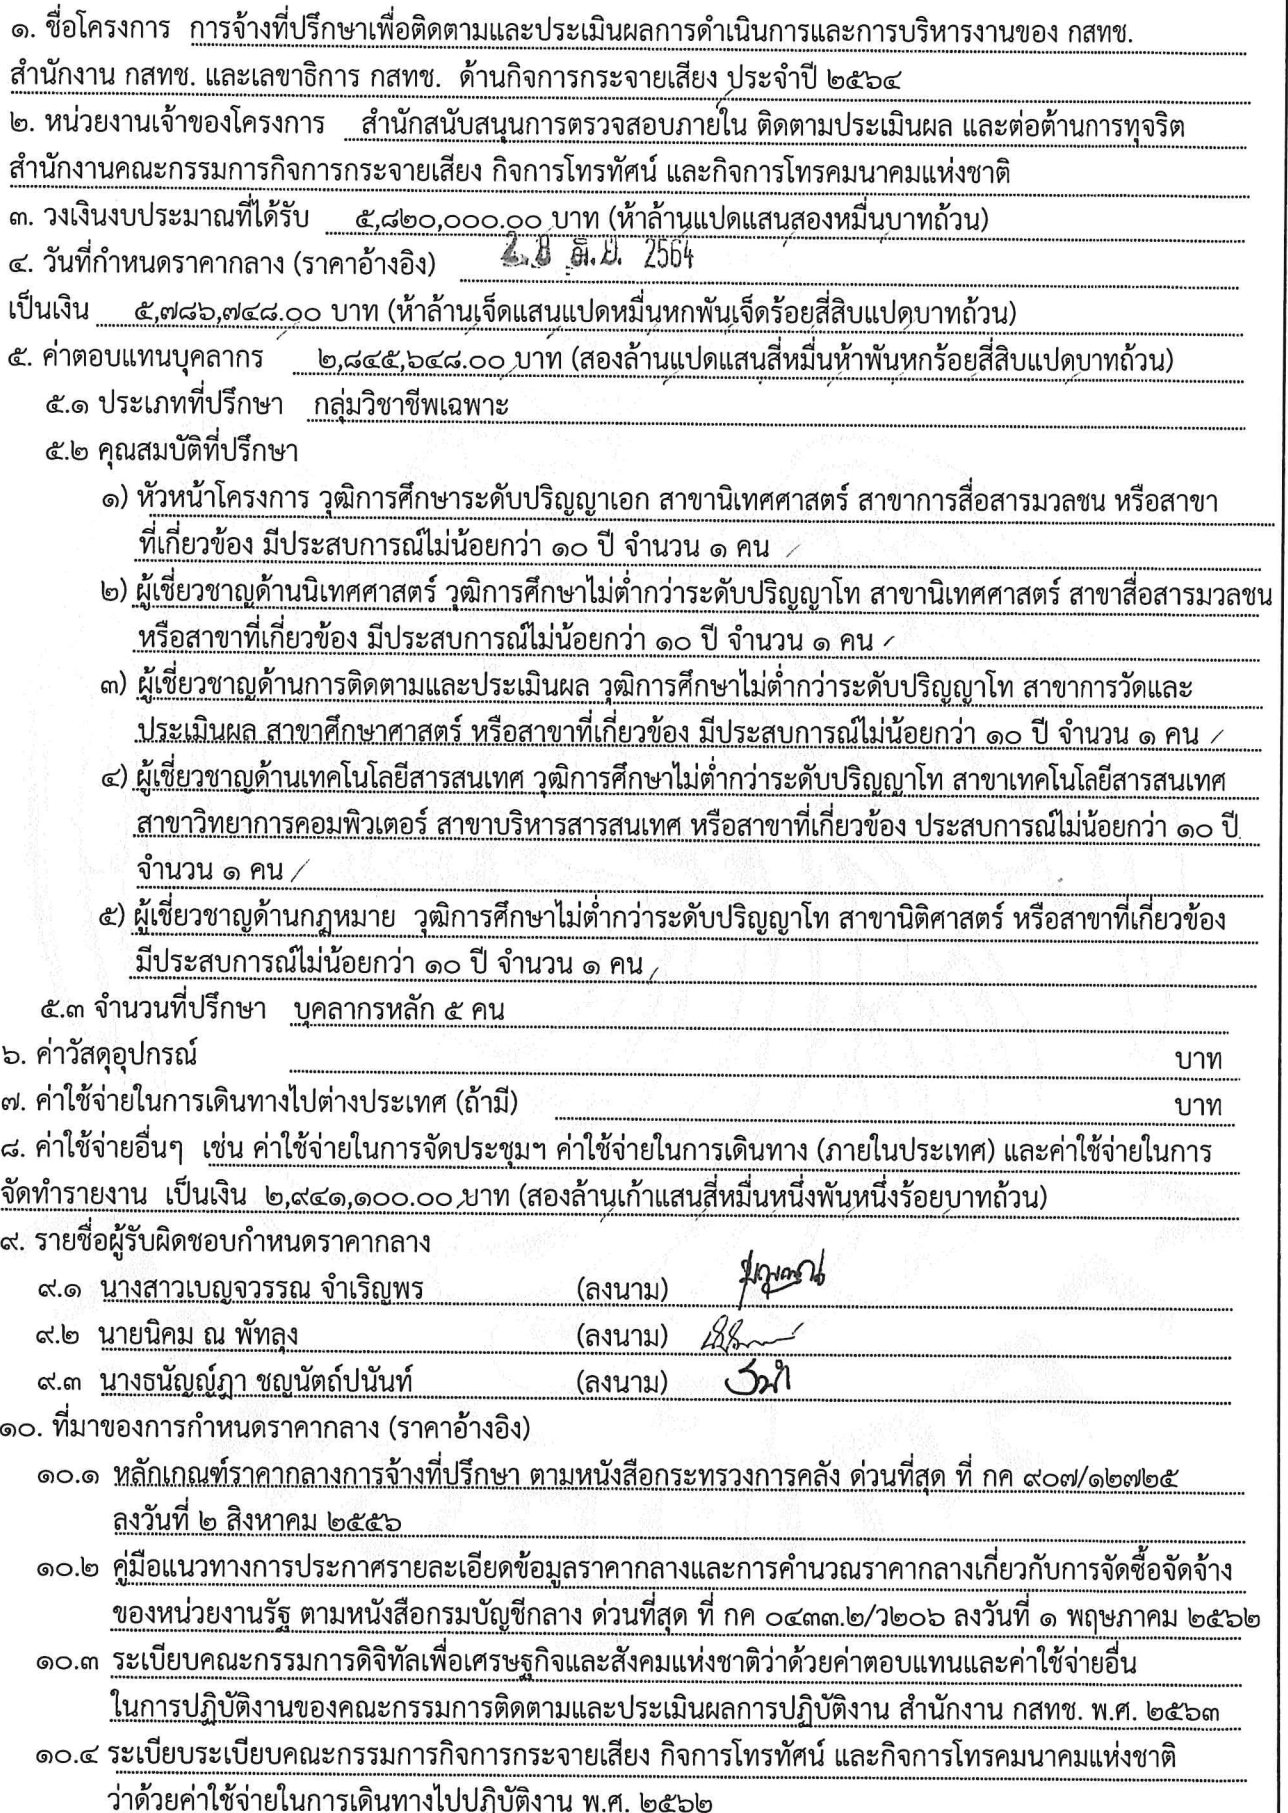 ๑. ชื่อโครงการ การจ้างที่ปรึกษาเพื่อติดตามและประเมินผลการดำเนินการและการบริหารงานของ กสทช.
สำนักงาน กสทช. และเลขาธิการ กสทช. ด้านกิจการกระจายเสียง ประจำปี ๒๕๖๔
๒. หน่วยงานเจ้าของโครงการ สำนักสนับสนุนการตรวจสอบภายใน ติดตามประเมินผล และต่อต้านการทุจริต
สำนักงานคณะกรรมการกิจการกระจายเสียง กิจการโทรทัศน์ และกิจการโทรคมนาคมแห่งชาติ
๓. วงเงินงบประมาณที่ได้รับ ๕,๘๒๐,๐๐๐.๐๐ บาท (ห้าล้านแปดแสนสองหมื่นบาทถ้วน)
๔. วันที่กำหนดราคากลาง (ราคาอ้างอิง) มิ.ย. 2564
เป็นเงิน ๕,๗๘๖,๗๔๘.๐๐ บาท (ห้าล้านเจ็ดแสนแปดหมื่นหกพันเจ็ดร้อยสี่สิบแปดบาทถ้วน)
๕. ค่าตอบแทนบุคลากร ๒,๘๔๕,๖๔๘.๐๐ บาท (สองล้านแปดแสนสี่หมื่นห้าพันหกร้อยสี่สิบแปดบาทถ้วน)
๕.๑ ประเภทที่ปรึกษา กลุ่มวิชาชีพเฉพาะ
๕.๒ คุณสมบัติที่ปรึกษา
๑) หัวหน้าโครงการ วุฒิการศึกษาระดับปริญญาเอก สาขานิเทศศาสตร์ สาขาการสื่อสารมวลชน หรือสาขา
ที่เกี่ยวข้อง มีประสบการณ์ไม่น้อยกว่า ๑๐ ปี จำนวน ๑ คน
๒) ผู้เชี่ยวชาญด้านนิเทศศาสตร์ วุฒิการศึกษาไม่ต่ำกว่าระดับปริญญาโท สาขานิเทศศาสตร์ สาขาสื่อสารมวลชน
หรือสาขาที่เกี่ยวข้อง มีประสบการณ์ไม่น้อยกว่า ๑๐ ปี จำนวน ๑ คน
๓) ผู้เชี่ยวชาญด้านการติดตามและประเมินผล วุฒิการศึกษาไม่ต่ำกว่าระดับปริญญาโท สาขาการวัดและ
ประเมินผล สาขาศึกษาศาสตร์ หรือสาขาที่เกี่ยวข้อง มีประสบการณ์ไม่น้อยกว่า ๑๐ ปี จำนวน ๑ คน
๔) ผู้เชี่ยวชาญด้านเทคโนโลยีสารสนเทศ วุฒิการศึกษาไม่ต่ำกว่าระดับปริญญาโท สาขาเทคโนโลยีสารสนเทศ
สาขาวิทยาการคอมพิวเตอร์ สาขาบริหารสารสนเทศ หรือสาขาที่เกี่ยวข้อง ประสบการณ์ไม่น้อยกว่า ๑๐ ปี
จำนวน ๑ คน
๕) ผู้เชี่ยวชาญด้านกฎหมาย วุฒิการศึกษาไม่ต่ำกว่าระดับปริญญาโท สาขานิติศาสตร์ หรือสาขาที่เกี่ยวข้อง
มีประสบการณ์ไม่น้อยกว่า ๑๐ ปี จำนวน ๑ คน
๕.๓ จำนวนที่ปรึกษา บุคลากรหลัก ๕ คน
๖. ค่าวัสดุอุปกรณ์ บาท
๗. ค่าใช้จ่ายในการเดินทางไปต่างประเทศ (ถ้ามี) บาท
๘. ค่าใช้จ่ายอื่นๆ เช่น ค่าใช้จ่ายในการจัดประชุมฯ ค่าใช้จ่ายในการเดินทาง (ภายในประเทศ) และค่าใช้จ่ายในการ
จัดทำรายงาน เป็นเงิน ๒,๙๔๑,๑๐๐.๐๐ บาท (สองล้านเก้าแสนสี่หมื่นหนึ่งพันหนึ่งร้อยบาทถ้วน)
๙. รายชื่อผู้รับผิดชอบกำหนดราคากลาง
๙.๑ นางสาวเบญจวรรณ จำเริญพร (ลงนาม)
๙.๒ นายนิคม ณ พัทลุง (ลงนาม)
๙.๓ นางธนัญญ์ภา ชญนัตถ์ปนันท์ (ลงนาม)
๑๐. ที่มาของการกำหนดราคากลาง (ราคาอ้างอิง)
๑๐.๑ หลักเกณฑ์ราคากลางการจ้างที่ปรึกษา ตามหนังสือกระทรวงการคลัง ด่วนที่สุด ที่ กค ๙๐๗/๑๒๗๒๕
ลงวันที่ ๒ สิงหาคม ๒๕๕๖
๑๐.๒ คู่มือแนวทางการประกาศรายละเอียดข้อมูลราคากลางและการคำนวณราคากลางเกี่ยวกับการจัดซื้อจัดจ้าง
ของหน่วยงานรัฐ ตามหนังสือกรมบัญชีกลาง ด่วนที่สุด ที่ กค ๐๔๓๓.๒/ว๒๐๖ ลงวันที่ ๑ พฤษภาคม ๒๕๖๒
๑๐.๓ ระเบียบคณะกรรมการดิจิทัลเพื่อเศรษฐกิจและสังคมแห่งชาติว่าด้วยค่าตอบแทนและค่าใช้จ่ายอื่น
ในการปฏิบัติงานของคณะกรรมการติดตามและประเมินผลการปฏิบัติงาน สำนักงาน กสทช. พ.ศ. ๒๕๖๓
๑๐.๔ ระเบียบระเบียบคณะกรรมการกิจการกระจายเสียง กิจการโทรทัศน์ และกิจการโทรคมนาคมแห่งชาติ
ว่าด้วยค่าใช้จ่ายในการเดินทางไปปฏิบัติงาน พ.ศ. ๒๕๖๒